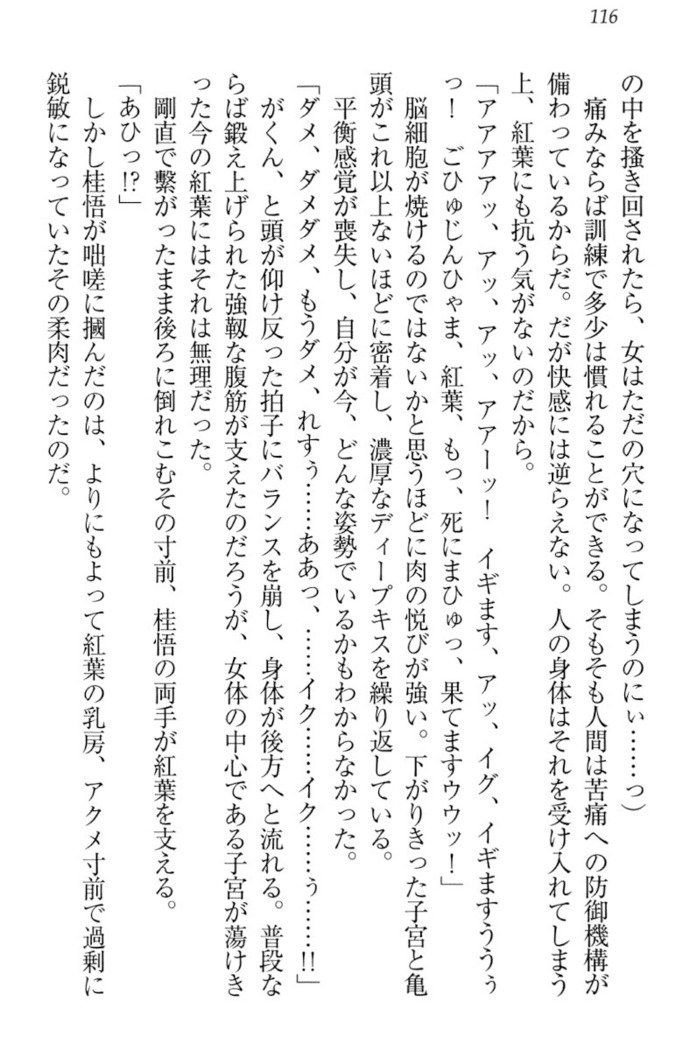 116
の中を掻き回されたら、女はただの穴になってしまうのにぃ……っ)
痛みならば訓練で多少は慣れることができる。そもそも人間は苦痛への防御機構が
備わっているからだ。だが快感には逆らえない。人の身体はそれを受け入れてしまう
上、紅葉にも抗う気がないのだから。
「アアアアッ、アッ、アッ、アアーッ! イギます、アッ、イグ、イギますうううぅ
っ! ごひゅじんひゃま、紅葉、もっ、死にまひゅっ、果てますウウッ!」
脳細胞が焼けるのではないかと思うほどに肉の悦びが強い。下がりきった子宮と亀
頭がこれ以上ないほどに密着し、濃厚なディープキスを繰り返している。
平衡感覚が喪失し、自分が今、どんな姿勢でいるかもわからなかった。
「ダメ、ダメダメ、もうダメ、れすぅ……ああっ、……イク……イク……ぅ……!!」
がくん、と頭が仰け反った拍子にバランスを崩し、身体が後方へと流れる。普段な
らば鍛え上げられた強靱な腹筋が支えたのだろうが、女体の中心である子宮が蕩けき
った今の紅葉にはそれは無理だった。
剛直で繋がったまま後ろに倒れこむその寸前、桂悟の両手が紅葉を支える。
「あひっ!?」
しかし桂悟が咄嗟に摑んだのは、よりにもよって紅葉の乳房、アクメ寸前で過剰に
鋭敏になっていたその柔肉だったのだ。